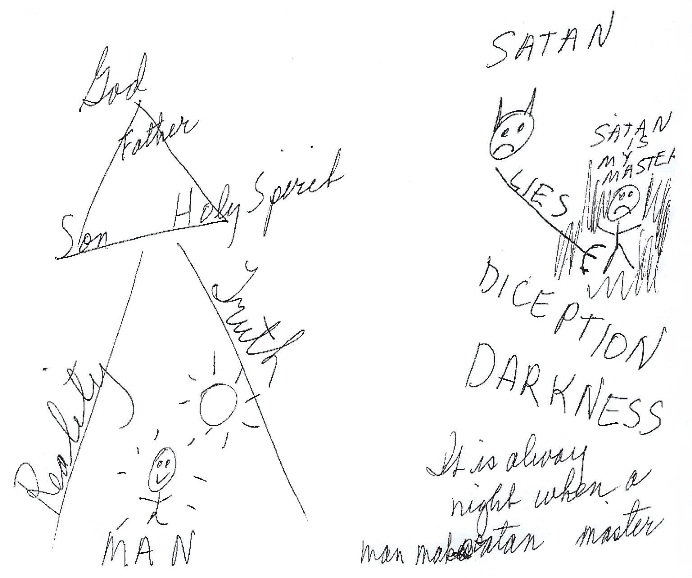 God
Father
Son
Holy Spirit
Truth
Reality
MAN
SATAN
LIES
SATAN
IS
MY
MASTER
DICEPTION
DARKNESS
It is alway
night when a
man makes satan master